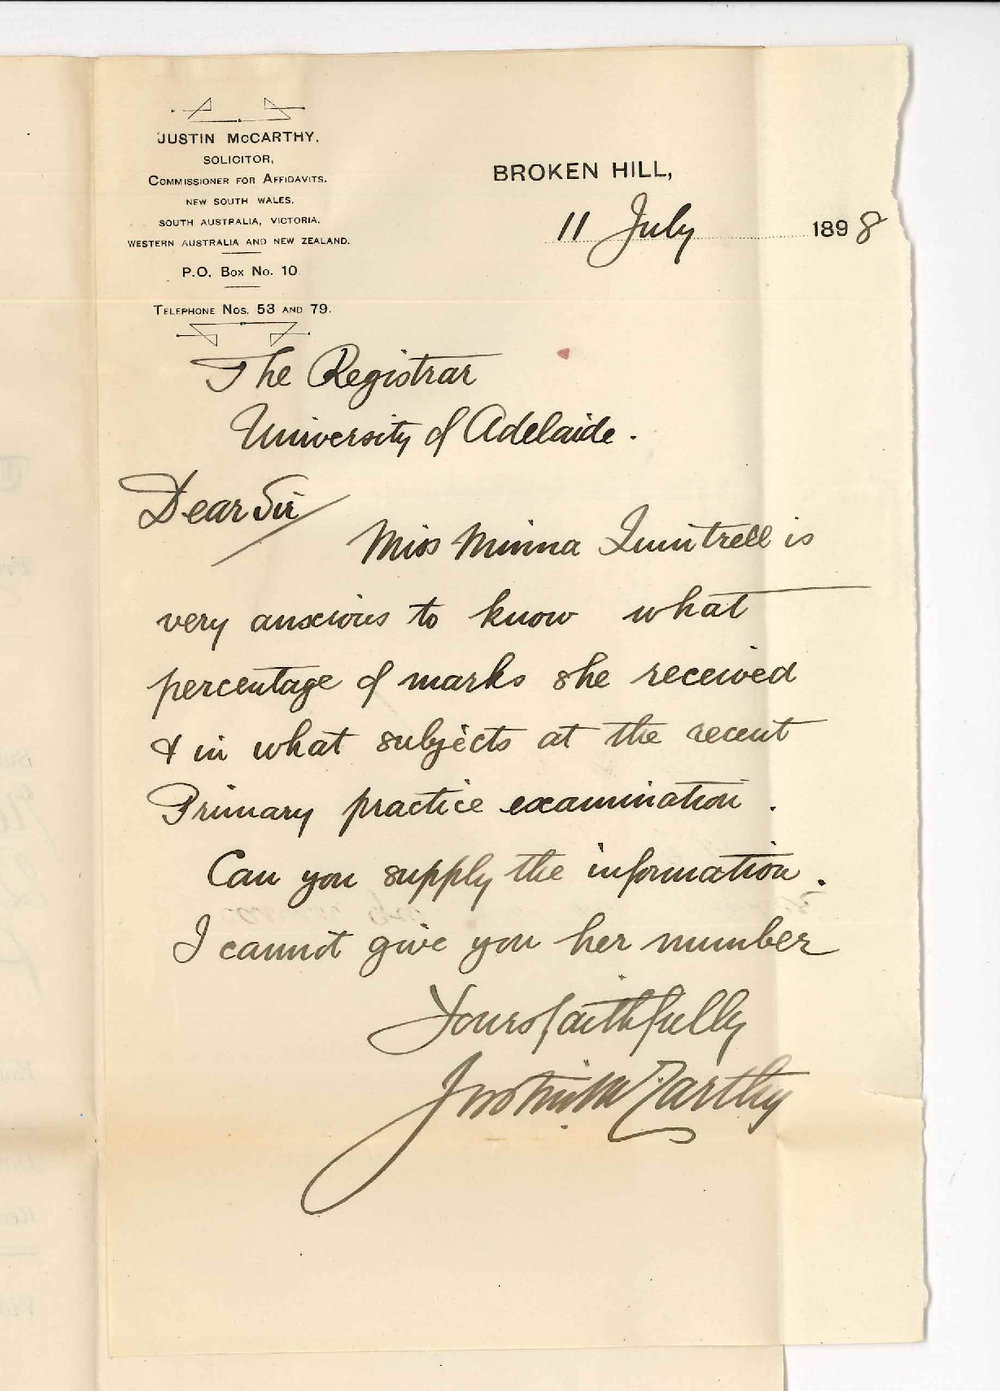 JUSTIN McCARTHY,
SOLICITOR,
COMMISSIONER FOR AFFIDAVITS.
NEW SOUTH WALES,
SOUTH AUSTRALIA, VICTORIA,
WESTERN AUSTRALIA AND NEW ZEALAND.
P.O. Box No. 10
TELEPHONE Nos. 53 AND 79.
BROKEN HILL,
11 July 1898
The Registrar
University of Adelaide.
Dear Sir
Miss Minna is
very anxious to know what
percentage of marks she received
& in what subjects at the recent
Primary practice examination.
Can you supply the information.
I cannot give you her number
Yours faithfully
Justin McCarthy